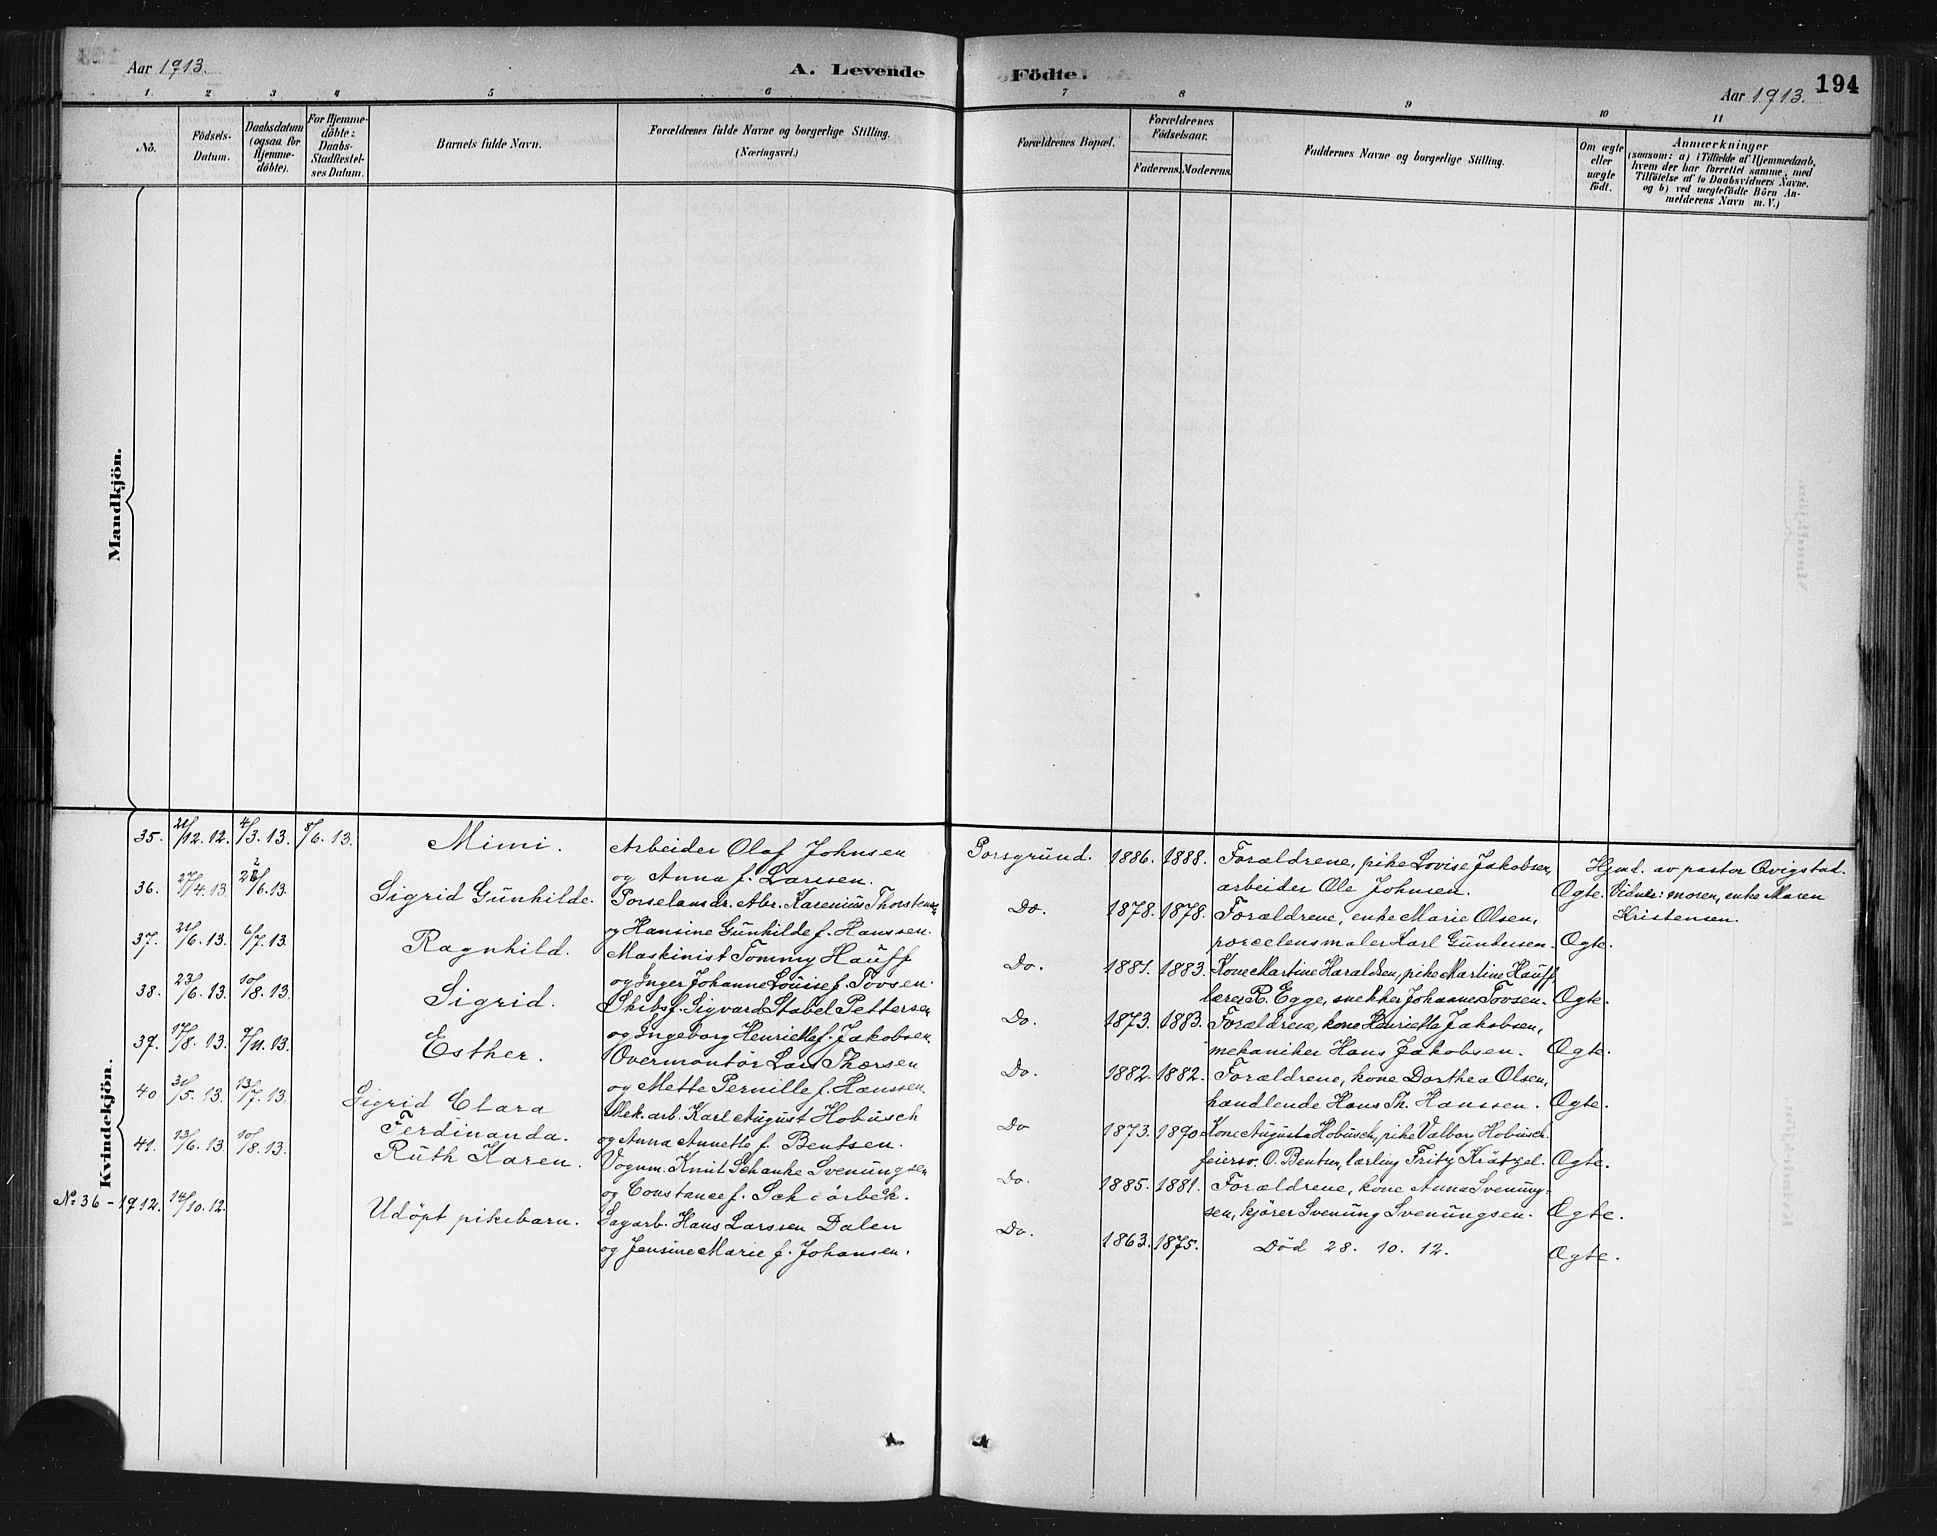 Aar 1913.
A. Levende Födte.
194
Aar 1913.
1 2 3 4 5 6 7 8 9 10 11
No.
Födsels-
Datum.
Daabsdatum
(ogsaa for
Hjemme-
döbte).
For Hjemme-
döbte:
Daabs-
Stadfæstel-
ses Datum.
Barnets fulde Navn.
Forældrenes fulde Navne og borgerlige Stilling.
(Næringsvei.)
Forældrenes Bopæl.
Forældrenes
Födselsaar.
Faderens. Moderens.
Faddernes Navne og borgerlige Stilling.
Om ægte
eller
uægte
født.
Anmærkninger
(saasom: a) i Tilfælde af Hjemmedaab,
hvem der har forrettet samme, med
Tilföielse af to Daabsvidners Navne.
og b) ved uægtefödte Börn An-
melderens Navn m. V.)
Mandkjön.
Kvindekjön.
35. 21/12. 12. 4/3. 13. 8/6. 13. Mimi. Arbeider Olaf Johnsen
og Anna f. Larssen.
Porsgrund. 1886. 1888. Forældrene, pike Lovise Jakobsen,
arbeider Ole Johnsen. Øgte.
Hjmd. av pastor Qvigstad.
Vidner: moren, enke Maren
Kristensen.
36. 27/4. 13. 22/6. 13. Sigrid Gunhilde. Porselansdr. Abr. Karenius Thorstensen
og Hansine Gunhilde f. Hanssen.
Do. 1878. 1878. Forældrene, enke Marie Olsen,
porcelensmaler Karl Gundersen. Øgte.
37. 21/6. 13. 6/7. 13. Ragnhild. Maskinist Tommy Hauff
og Inger Johanne Louise f. Tovsen.
Do. 1881. 1883. Kone Martine Haraldsen, pike Martine Hauff,
lærer R. Egge, snekker Johannes Tovsen. Øgte.
38. 23/6. 13. 10/8. 13. Sigrid. Skibsf. Sigvard Stabel Pettersen
og Ingeborg Henriette f. Jakobsen.
Do. 1873. 1883. Forældrene, kone Henriette Jakobsen,
mekaniker Hans Jakobsen. Øgte.
39. 17/8. 13. 9/11. 13. Esther. Overmontör Lars Thorsen
og Mette Pernille f. Hanssen.
Do. 1882. 1882. Forældrene, kone Dorthea Olsen,
handlende Hans Th. Hanssen. Øgte.
40 31/5. 13. 13/7. 13. Sigrid Clara
Ferdinanda.
Mek. arb. Karl August Hobusch
og Anna Annette f. Bentsen.
Do 1873. 1890. Kone Augusta Hobusch, pike Valborg Hobusch.
feiersv. O. Bentsen, lærling Fritz Krätzel. Øgte.
41. 13/6. 13. 10/8. 13. Ruth Karen. Vognm. Knut Schanke Svenungsen
og Constance f. Schiörbeck.
Do. 1885. 1881. Forældrene, kone Anna Svenung-
sen, kjörer Svenung Svenungsen. Øgte.
No. 36 - 1912. 14/10. 12. Udöpt pikebarn. Sagarb. Hans Larssen Dalen
og Jensine Marie f. Johansen.
Do. 1863. 1875. Död 28. 10. 12. Øgte.